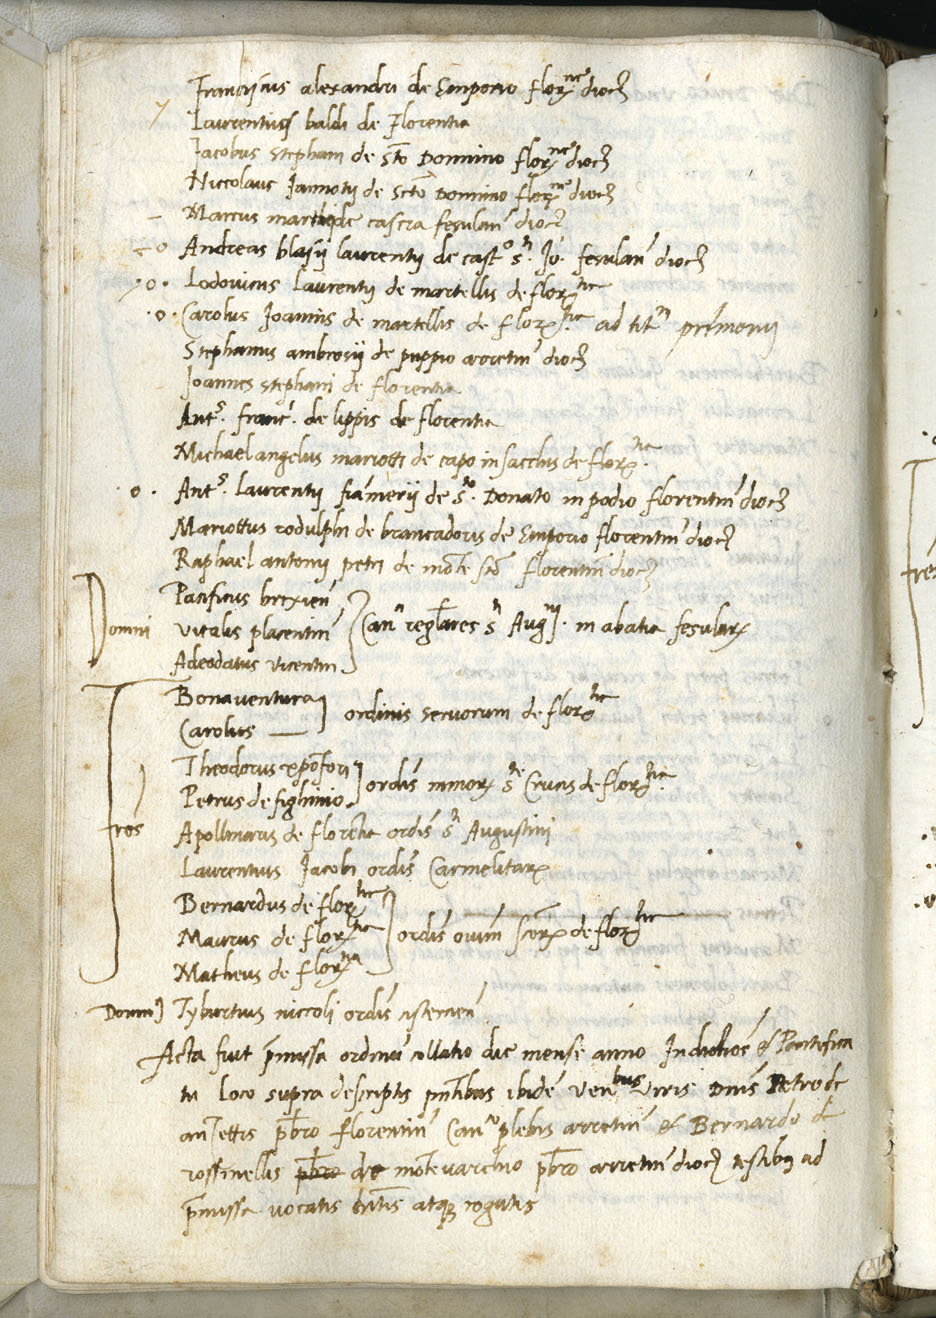 Franciscus alexandri de Emporio flor.ne dioc
Laurentius baldi de Florentia
Jacobus stephani de Sto Donnino flor.ne dioc
Niccolaus Jannotij de Scto Donnino flor.ne dioc
Marcus de cascia fesulan dioc
Andreas blasij laurentij de cast.o S. Jo. fesulan dioc
Lodovicus Laurentij de martellis de flor.tia
Carolus Joannis de martellis de flor.tia ad tit.m primonij
Stephanus ambrosij de puppio arretin dioc
Joannes stephani de florentia
Ant.s franc. de lippis de florentia
Michaelangelus mariotti de capo in sacchis de flor.tia
Ant.s Laurentij de S.to Donato in podio florentin dioc
Mariottus rodulphi de brancadoris de Emporio florentin dioc
Raphael antonij petri de monte florentin dioc
Pacificus brixien
Domni Vitalis placentin Can.ci reglares S.ti Aug.ni in abatia fesulax
Adeodatus vicentin
Bonaventura
Carolus ordinis servorum de flor.tia
Theodorus xpofori
Petrus de fighinio ordis minorx S.te Crucis de flor.tia
fres Apollinaris de florentia ordis S.ti Augustini
Laurentius Jacobi ordis Carmelitarx
Bernardus de flor.tia
Maurus de flor.tia ordis oium scorx de flor.tia
Matheus de flor.tia
Domnus Tyburtius niccoli ordis cistercien
Acta fuit pmissa ordinum collatio die mense anno Indictiones et Pontifica
tu loco supra descriptis pntibus ibide ven.bus viris Dnis Petro de
pbro florentin Can.co plebis arretin et Bernardo de
rossinellis pbro de montevarchio pbro arretin dioc testibus ad
pmissa vocatis hitis atque rogatis